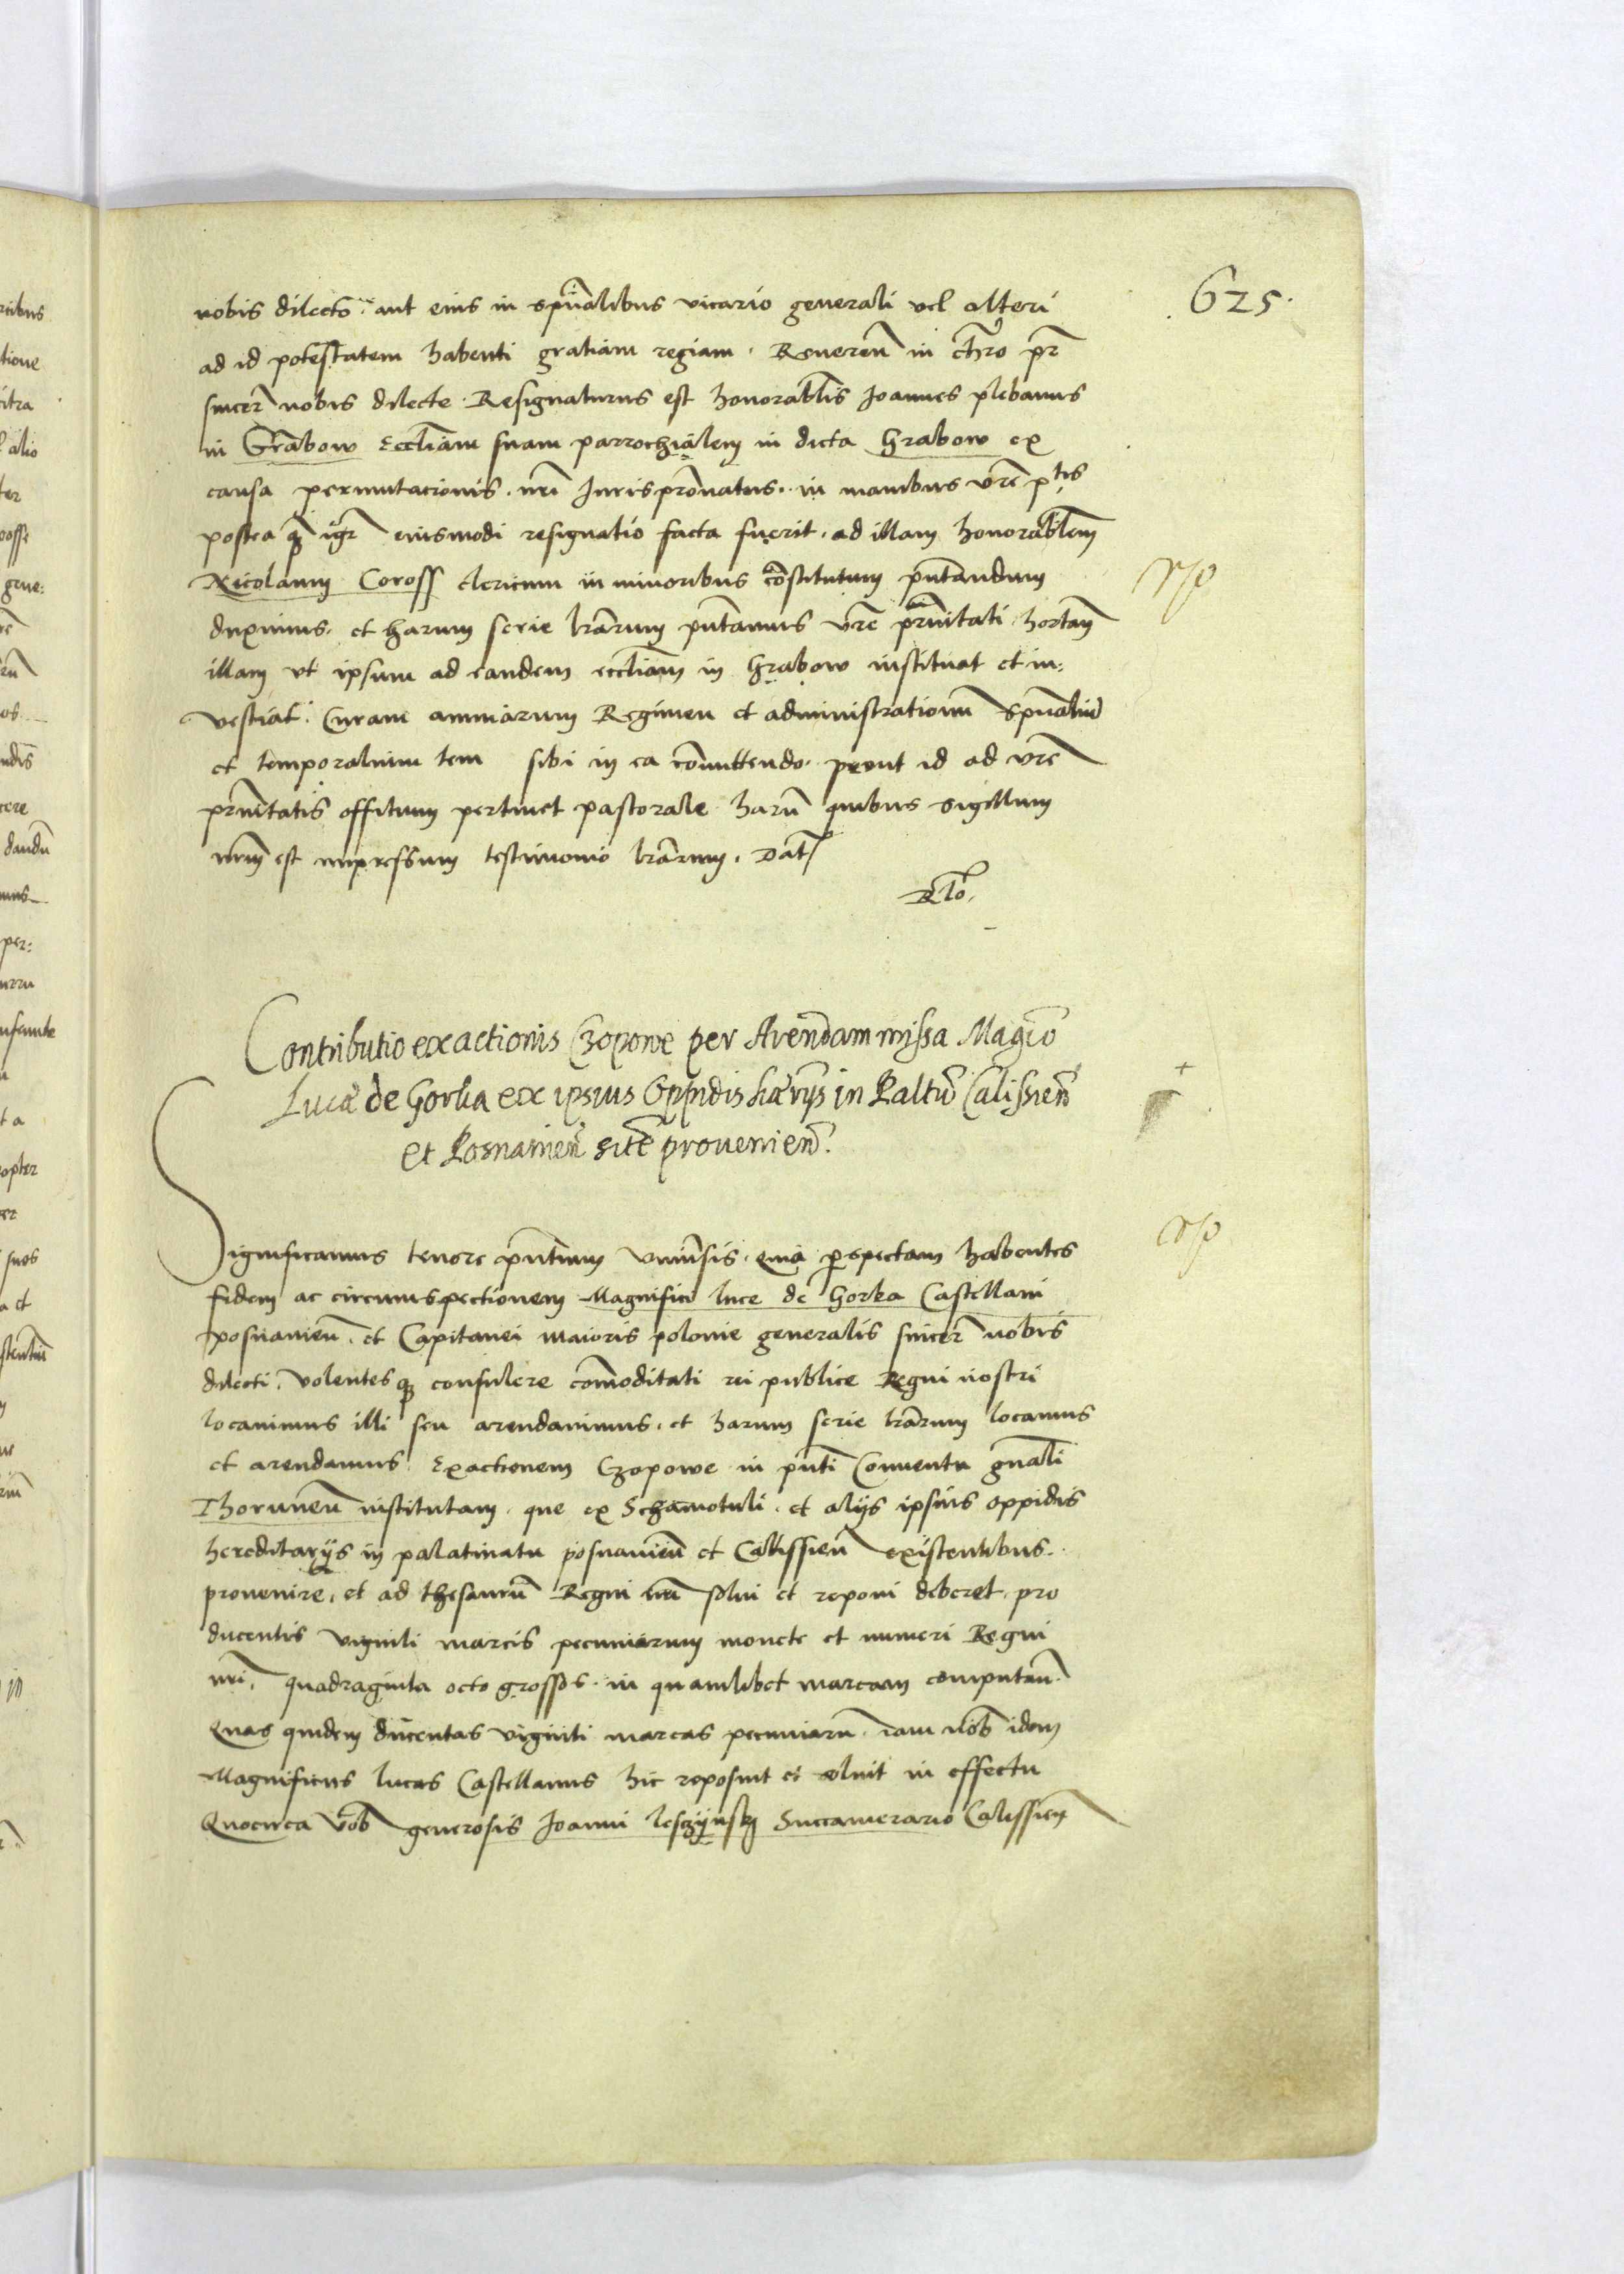 625.
nobis dilecto aut eius in sp̃ualibus vicario generali vel alteri
ad id potestatem habenti gratiam regiam. Reueren̄ in chro pr̃
sincer̃ nobis dilecte. Resignaturus est honorab̃lis Joannes plebanus
in Grabow Eccl̃iam suam parrochialem in dicta Grabow ex
causa permutacionis nr̃i Juris pr̃onatus in manibus vr̃e p̃tis
postea q̃ igr̃ eiusmodi resignatio facta fuerit ad illam honorab̃lem
Nicolaum Coross clericum in minoribus cõstitutum pñtandum
duximus. et harum serie lr̃arum pñtamus vr̃e pr̃nitati hortam̃
illam vt ipsum ad eandem eccl̃iam in Grabow instituat et in:
vestiat. Curam animarum Regimen et administrationem̃ Spũaliũ
et temporalium tem sibi in ea com̃ittendo. prout id ad vr̃e
pr̃nitatis offitium pertinet pastorale harũ quibus sigillum
nr̃m est impressum testimonio lr̃arum. Dat̃
Rl̃o.
Contributio exactionis Czopowe per Arendam missa Mag̃co
Lucæ de Gorka ex ipsius Oppidis hær̃ijs in Palt̃u Calissien̄
et Posnanien̄ sitis prouenien̄.
Significamus tenore pñtium vniuẽsis. quia perspectam habentes
fidem ac circumspectionem Magnifici luce de Gorka Castellani
posnanien̄. et Capitanei maioris polonie generalis sincer̃ nobis
dilecti. Volentesq̃ consulere com̃oditati rei publice Regni nostri
locauimus illi seu arendauimus. et harum serie lr̃arum locamus
et arendamus Exactionem Czopowe in pñti Conuentu gñali
Thorunen̄ institutam. que ex Schamotuli. et alijs ipsius oppidis
hereditarijs in palatinatu posnanien̄ et Calissien̄ existentibus.
prouenire. et ad thesaurũ Regni nr̃m solui et reponi deberet. pro
ducentis viginti marcis pecuniarum monete et numeri Regni
nr̃i. quadraginta octo grossos in quamlibet marcam computan̄.
Quas quidem ducentas viginti marcas pecuniarũ iam nob̃ idem
Magnificus lucas Castellanus hic reposuit et soluit in effectu
Quocirca vob̃ generosis Joanni lesczynsky Succamerario Calissien̄